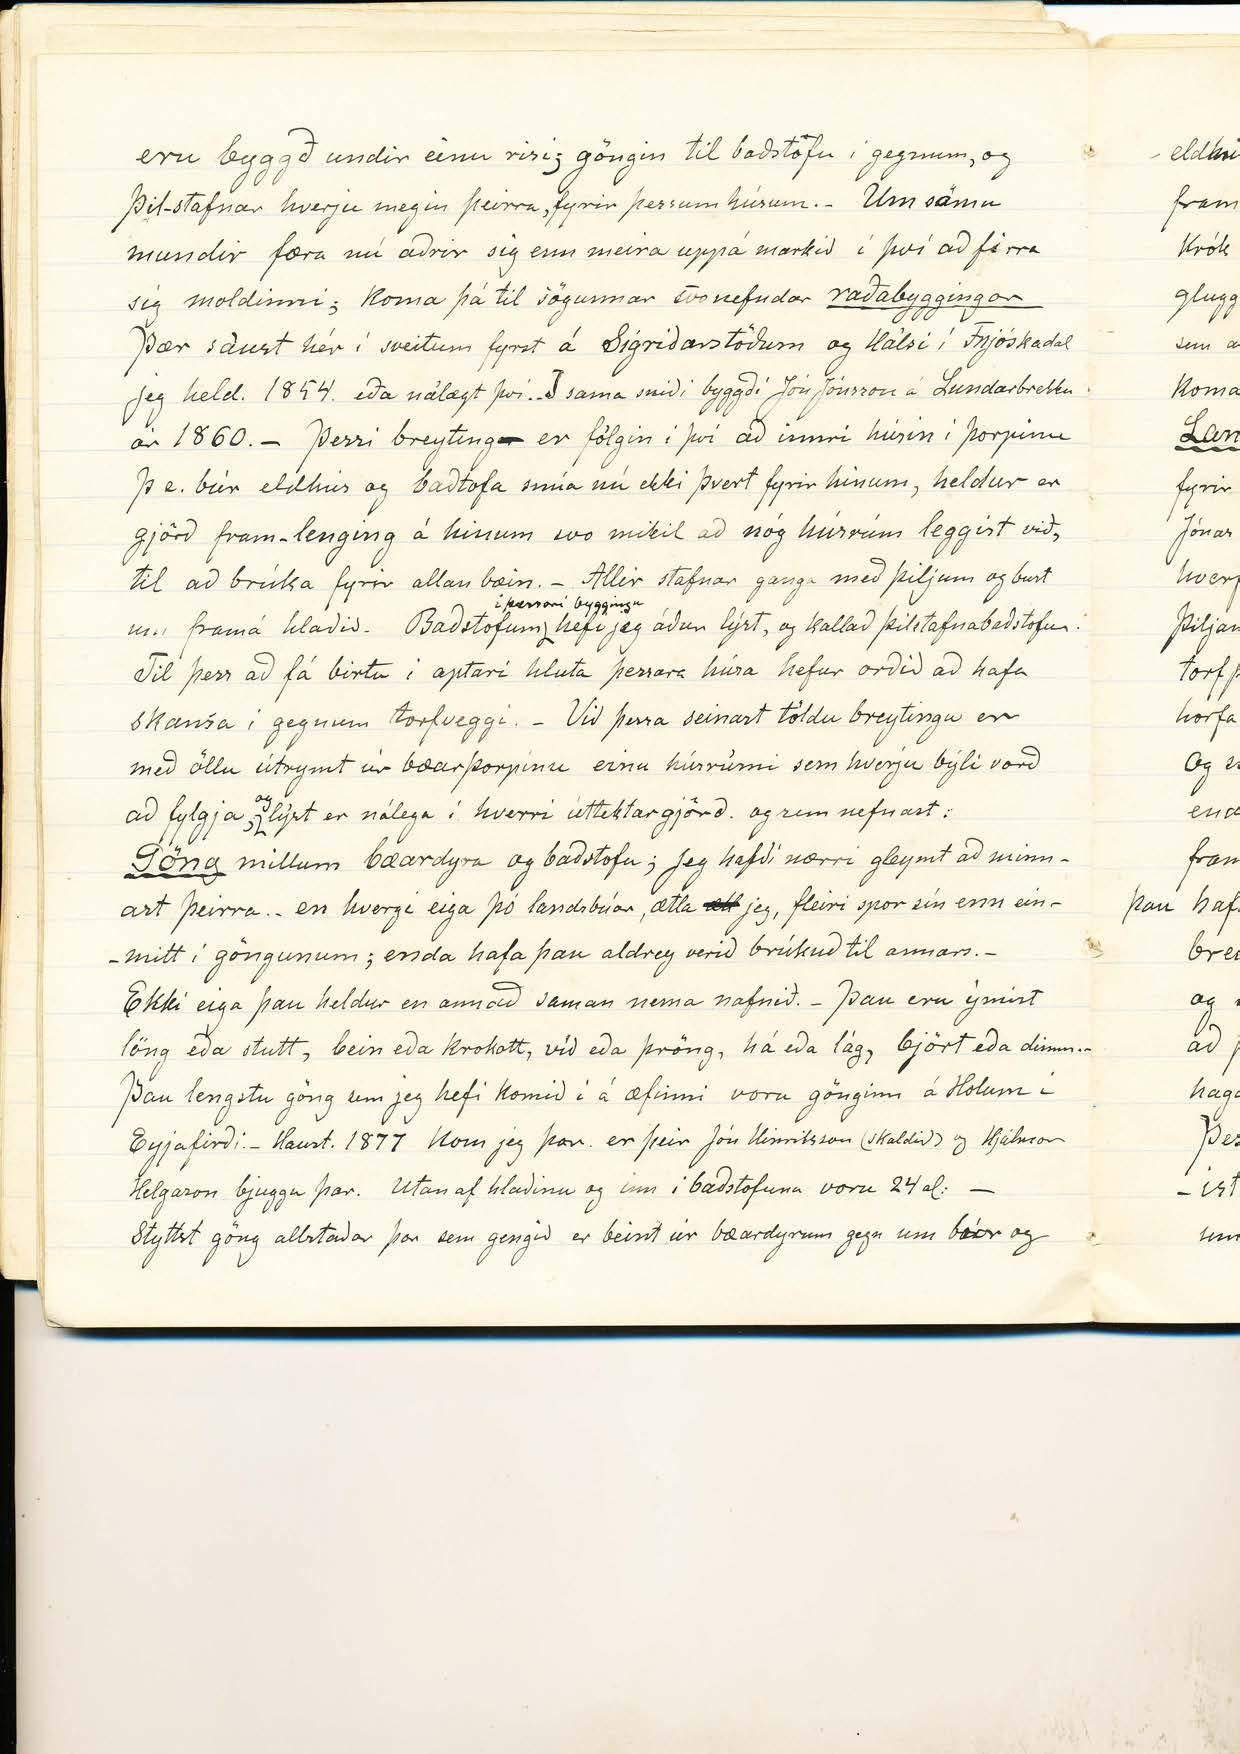 eru byggð undir einu risi; göngin til baðstöfu i gegnum, og
Þil-stafnar hverju megin þeirra, fyrir þessum húsum. - Um sömu
mundir fœra nú aðrir sig enn meira uppá markið i því að firra
sig moldinni; Koma þá til sögunnar svonefndar raðabyggingar
Þær sáust hér i sveitum fyrst á Sigriðarstöðum og Hálsi i Fnjóskadal
jeg held. 1854. eða nálægt því. - I sama sniði byggði Jón Jónsson á Lundarbrekku
ár 1860. - Þessi breyting er fólgin i því að innri húsin i þorpinu
þ e. búr eldhús og baðtofa snúa nú ekki þvert fyrir hinum, heldur er
gjörð fram-lenging á hinum svo mikil að nóg húsrúm leggist við,
til að brúka fyrir allan bœin. - Allir stafnar ganga með þiljum og bust
um framá hlaðið. Baðstofum i þessari byggingu hefi jeg áður lýst, og kallað þilstafnabaðstofur.
Til þess að fá birtu i aptari hluta þessara húsa hefur orðið að hafa
skansa i gegnum torfveggi. - Við þessa seinast töldu breytingu er
með öllu útrymt úr bœarþorpinu einu húsrúmi sem hverju býli varð
að fylgja; og lýst er nálega i hverri úttektargjörð. og sem nefnast:
Göng millum bœardyra og baðstofu; Jeg hafði nærri gleymt að minn-
ast þeirra. - en hvergi eiga þó landsbúar, ætla jeg, fleiri spor sín enn ein-
-mitt i göngunum; enda hafa þau aldrey verið brúkuð til annars. -
Ekki eiga þau heldur en annað saman nema nafnið. - Þau eru ýmist
löng eða stutt, bein eða krokott, víð eða þröng, há eða lág, björt eða dimm. -
Þau lengstu göng sem jeg hefi komið i á œfinni voru gönginn á Holum i
Eyjafirði. - Haust. 1877 Kom jeg þar. er þeir Jón Hinriksson (skaldið) og Hjálmar
Helgason bjuggu þar. Utan af hlaðinu og inn i baðstofuna voru 24 al: -
Styttst göng allstaðar þar sem gengið er beint úr bœardyrum gegn um búr og